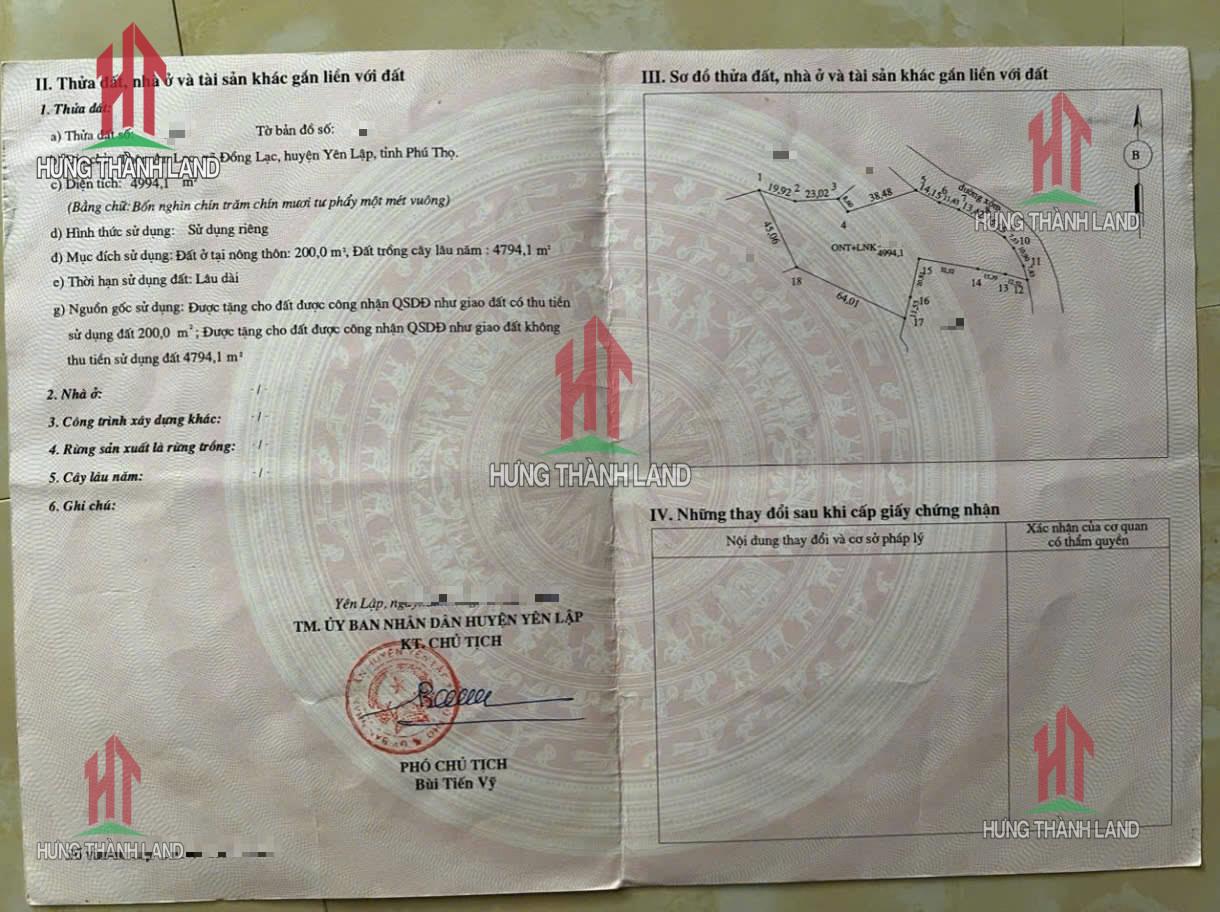 II. Thửa đất, nhà ở và tài sản khác gắn liền với đất
1. Thửa đất:
a) Thửa đất số:
Tờ bản đồ số:
xã Đồng Lạc, huyện Yên Lập, tỉnh Phú Thọ.
c) Diện tích: 4994,1 m²
(Bằng chữ: Bốn nghìn chín trăm chín mươi tư phẩy một mét vuông)
d) Hình thức sử dụng: Sử dụng riêng
đ) Mục đích sử dụng: Đất ở tại nông thôn: 200,0 m², Đất trồng cây lâu năm : 4794,1 m²
e) Thời hạn sử dụng đất: Lâu dài
g) Nguồn gốc sử dụng: Được tặng cho đất được công nhận QSDĐ như giao đất có thu tiền
sử dụng đất 200,0 m²; Được tặng cho đất được công nhận QSDĐ như giao đất không
thu tiền sử dụng đất 4794,1 m²
2. Nhà ở: -/-
3. Công trình xây dựng khác: -/-
4. Rừng sản xuất là rừng trồng: -/-
5. Cây lâu năm: -/-
6. Ghi chú:
Yên Lập,
TM. ỦY BAN NHÂN DÂN HUYỆN YÊN LẬP
KT. CHỦ TỊCH
PHÓ CHỦ TỊCH
Bùi Tiến Vỹ
III. Sơ đồ thửa đất, nhà ở và tài sản khác gắn liền với đất
B
1
19,92
2
23,02
3
4
38,48
5
14,15
6
11,43
đường xóm
10
11
12
13
14
15
16
17
18
45,06
64,01
ONT+LNK
4994,1
IV. Những thay đổi sau khi cấp giấy chứng nhận
Nội dung thay đổi và cơ sở pháp lý
Xác nhận của cơ quan
có thẩm quyền
HƯNG THÀNH LAND
HƯNG THÀNH LAND
HƯNG THÀNH LAND
HƯNG THÀNH LAND
HƯNG THÀNH LAND